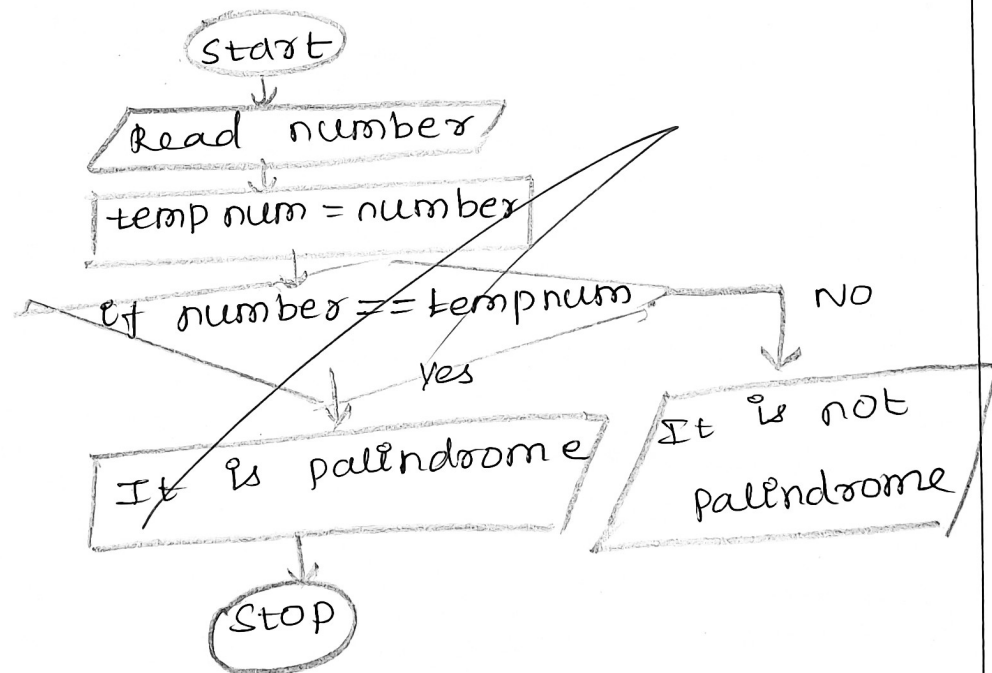 Start
Read number
tempnum = number
if number == tempnum
NO
Yes
It is palindrome
It is not
palindrome
Stop